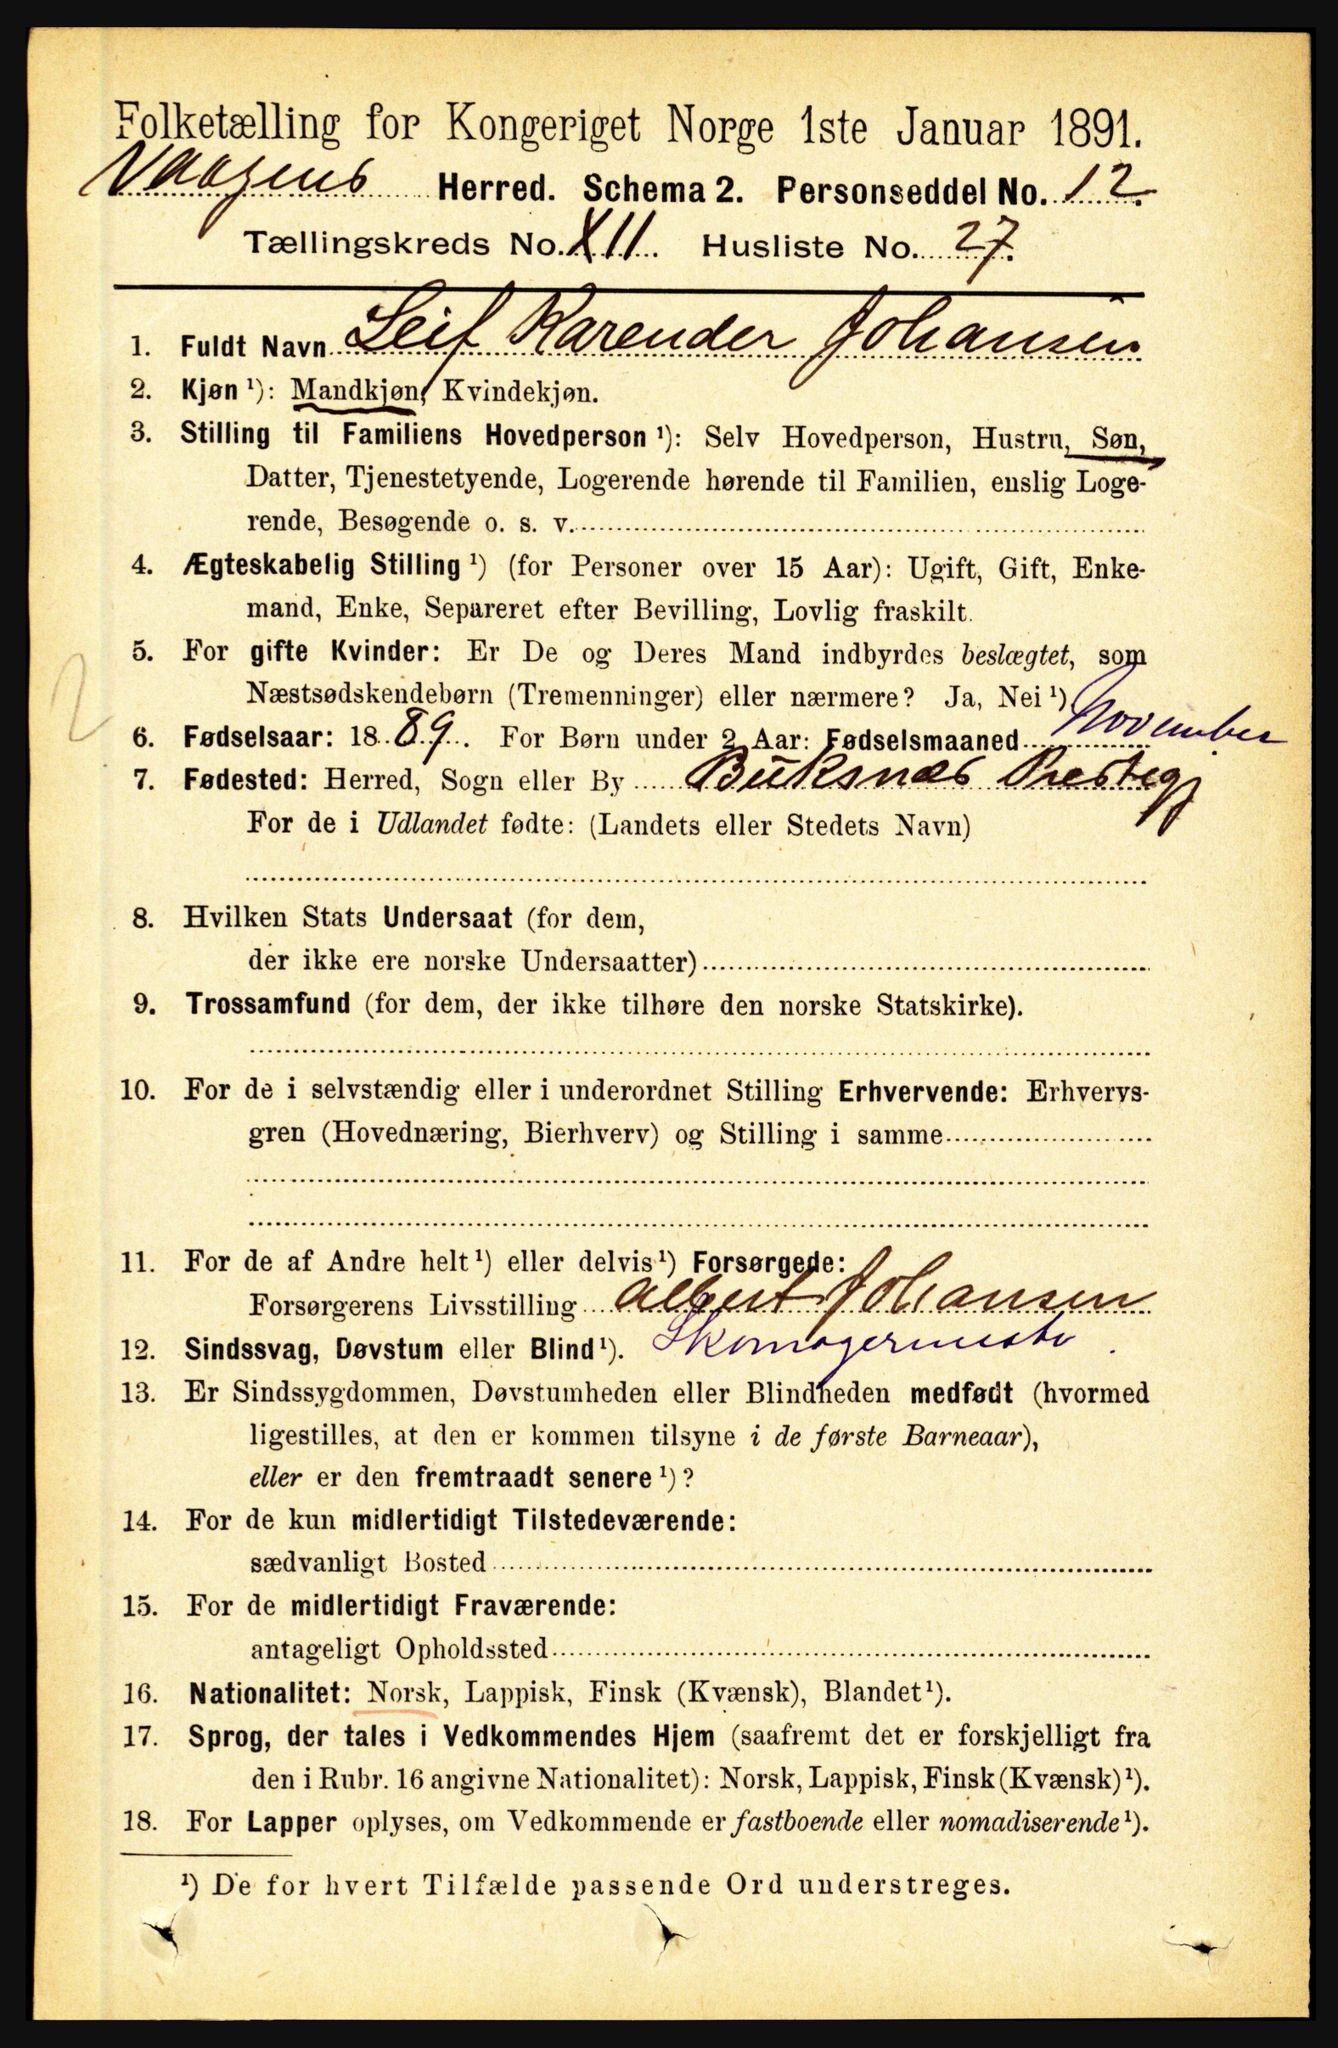 Folketælling for Kongeriget Norge 1ste Januar 1891.
Vaagens Herred. Schema 2. Personseddel No. 12.
Tællingskreds No. XII. Husliste No. 27.
1. Fuldt Navn Leif Karender Johansen
2. Kjøn ¹): Mandkjøn, Kvindekjøn.
3. Stilling til Familiens Hovedperson ¹): Selv Hovedperson, Hustru, Søn,
Datter, Tjenestetyende, Logerende hørende til Familien, enslig Loge-
rende, Besøgende o. s. v.
4. Ægteskabelig Stilling ¹) (for Personer over 15 Aar): Ugift, Gift, Enke-
mand, Enke, Separeret efter Bevilling, Lovlig fraskilt.
5. For gifte Kvinder: Er De og Deres Mand indbyrdes beslægtet, som
Næstsødskendebørn (Tremenninger) eller nærmere? Ja, Nei ¹)
6. Fødselsaar: 1889. For Børn under 2 Aar: Fødselsmaaned November
7. Fødested: Herred, Sogn eller By Buksnæs Prestegj
For de i Udlandet fødte: (Landets eller Stedets Navn)
8. Hvilken Stats Undersaat (for dem,
der ikke ere norske Undersaatter)
9. Trossamfund (for dem, der ikke tilhøre den norske Statskirke).
10. For de i selvstændig eller i underordnet Stilling Erhvervende: Erhvervs-
gren (Hovednæring, Bierhverv) og Stilling i samme
11. For de af Andre helt ¹) eller delvis ¹) Forsørgede:
Forsørgerens Livsstilling Albert Johansen
12. Sindssvag, Døvstum eller Blind ¹). Skomagermeste.
13. Er Sindssygdommen, Døvstumheden eller Blindheden medfødt (hvormed
ligestilles, at den er kommen tilsyne i de første Barneaar),
eller er den fremtraadt senere ¹)?
14. For de kun midlertidigt Tilstedeværende:
sædvanligt Bosted
15. For de midlertidigt Fraværende:
antageligt Opholdssted
16. Nationalitet: Norsk, Lappisk, Finsk (Kvænsk), Blandet ¹).
17. Sprog, der tales i Vedkommendes Hjem (saafremt det er forskjelligt fra
den i Rubr. 16 angivne Nationalitet): Norsk, Lappisk, Finsk (Kvænsk) ¹).
18. For Lapper oplyses, om Vedkommende er fastboende eller nomadiserende ¹).
¹) De for hvert Tilfælde passende Ord understreges.
2